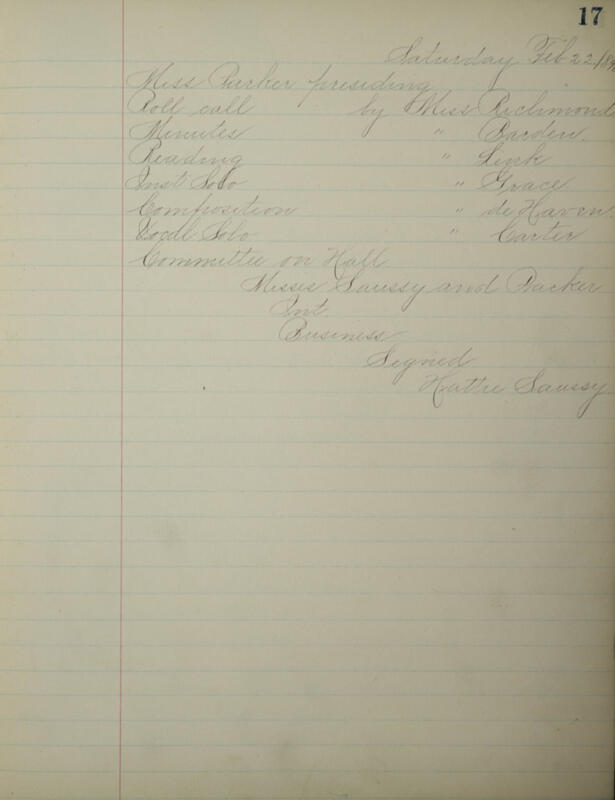 17
Saturday Feb 22/
Miss Parker presiding
Roll call by Miss Richmond
Minutes " Barden.
Reading " Link
Inst Solo " Grace
Composition " de Haven
Vocal Solo " Carter
Committee on Hall
Misses Saussy and Packer
Int.
Business
Signed
Hattie Saussy